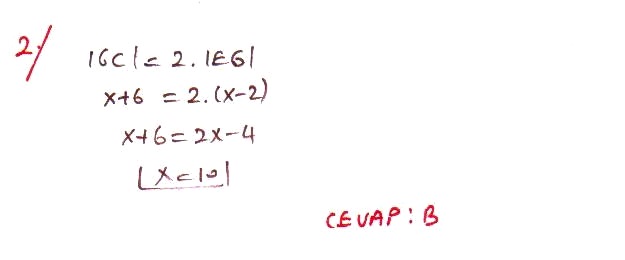 2)
|GC| = 2.|EG|
x+6 = 2.(x-2)
x+6 = 2x-4
x=10
CEVAP: B